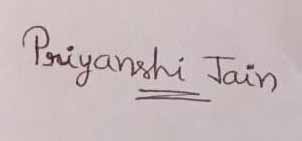 Priyanshi Jain